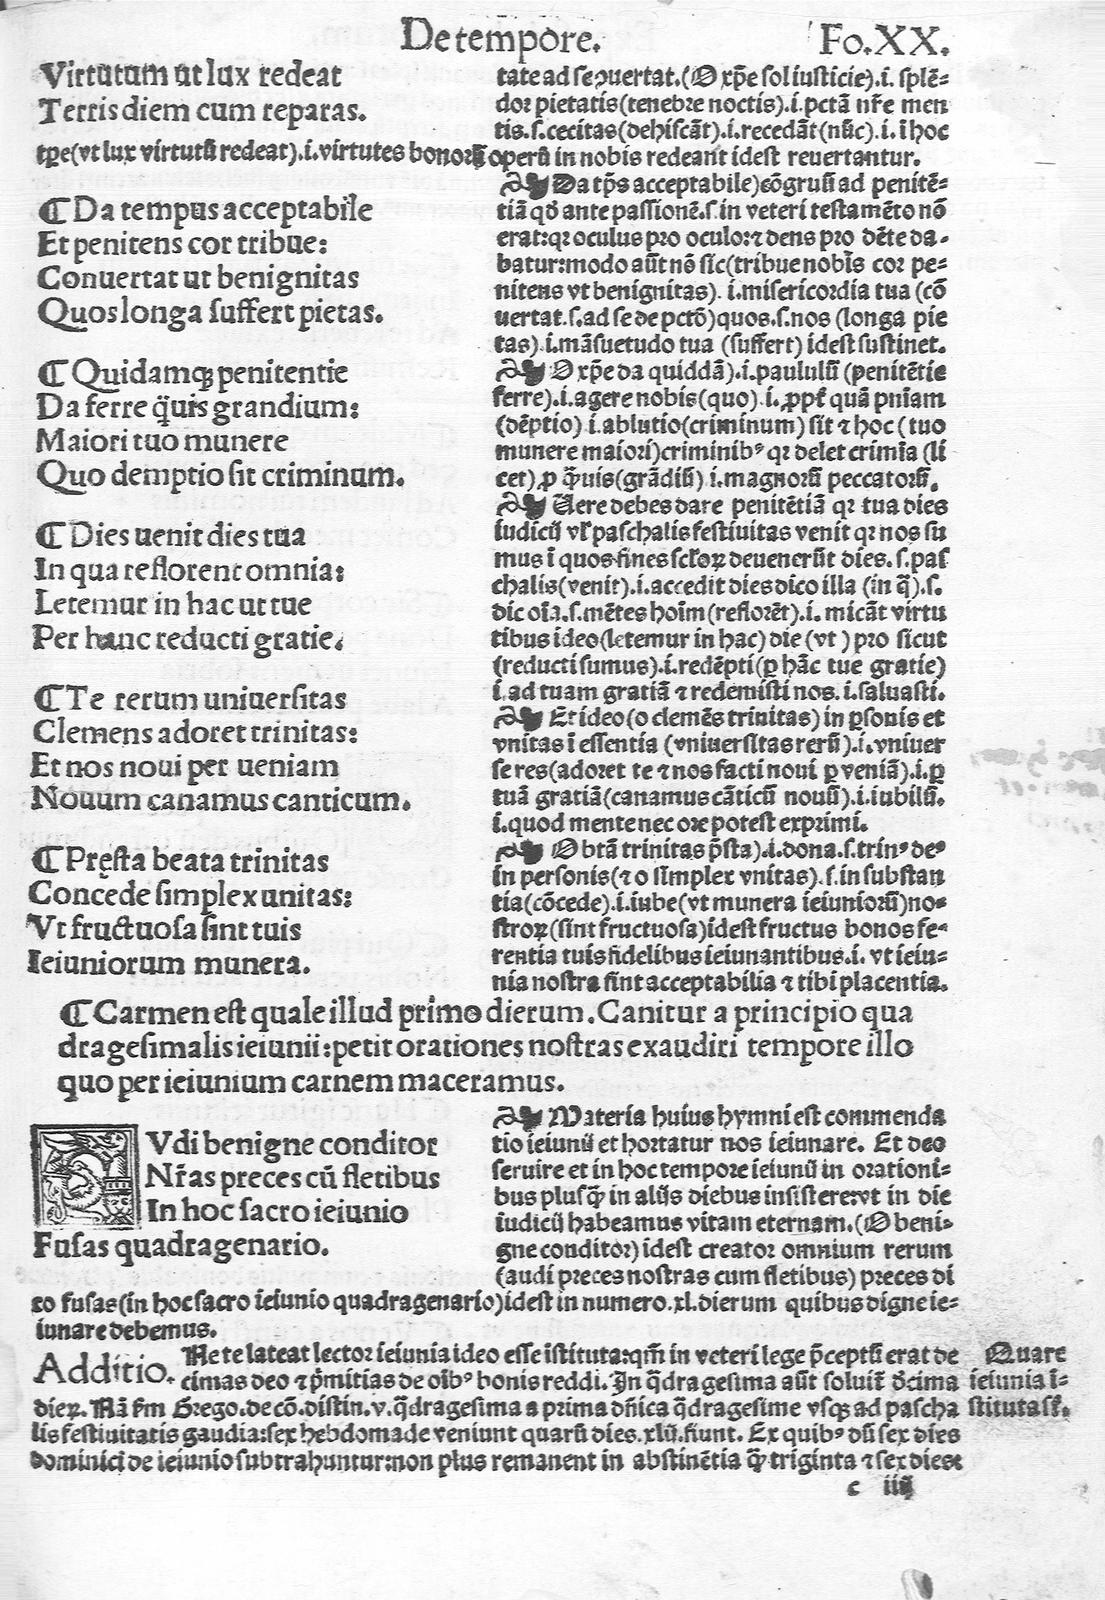 De tempore.
Fo.XX.
Virtutum ut lux redeat
Terris diem cum reparas.
tate ad se ɔuertat.(O xp̄e sol iusticie).i. splē-
dor pietatis(tenebre noctis).i.pctā nr̄e men
tis.s.cecitas(dehiscāt).i.recedāt(nūc).i. ī hoc
tp̄e(vt lux virtutū redeat).i.virtutes bonorū operū in nobis redeant idest reuertantur.
¶ Da tempus acceptabile
Et penitens cor tribue:
Conuertat ut benignitas
Quos longa suffert pietas.
Da tp̄s acceptabile)cōgruū ad penitē-
tiā qđ ante passionē.s.in veteri testamēto nō
erat:qr oculus pro oculo:⁊ dens pro dēte da-
batur:modo aūt nō sic(tribue nobis cor pe-
nitens vt benignitas). i.misericordia tua (cō
uertat.s.ad se de pctō)quos.s.nos (longa pie
tas).i.māsuetudo tua (suffert) idest sustinet.
¶ Quidamqꝫ penitentie
Da ferre q̄uis grandium:
Maiori tuo munere
Quo demptio sit criminum.
O xp̄e da quiddā).i.paululū (penitētie
ferre).i.agere nobis(quo).i.ꝓpt̄ quā pn̄iam
(dēptio) i.ablutio(criminum) sit ⁊ hoc (tuo
munere maiori)criminibꝰ qr delet crimīa (li
cet).ꝑ q̄uis(grādiū) i.magnorū peccatorū.
¶ Dies uenit dies tua
In qua reflorent omnia:
Letemur in hac ut tue
Per hanc reducti gratie.
Uere debes dare penitētiā qr tua dies
iudicij vl̄ paschalis festiuitas venit qr nos su
mus ī quos fines sclorꝝ deuenerūt dies.s.pas
chalis(venit).i.accedit dies dico illa (in q̄).s.
die oīa.s.mētes hoīm(reflorēt).i. micāt virtu
tibus ideo(letemur in hac) die (vt ) pro sicut
(reducti sumus).i.redēpti(ꝑ hāc tue gratie)
i.ad tuam gratiā ⁊ redemisti nos.i.saluasti.
¶ Te rerum uniuersitas
Clemens adoret trinitas:
Et nos noui per ueniam
Nouum canamus canticum.
Et ideo(o clemēs trinitas) in ꝑsonis et
vnitas ī essentia (vniuersitas rerū).i.vniuer
se res(adoret te ⁊ nos facti noui ꝑ veniā).i.ꝑ
tuā gratiā(canamus cāticū nouū).i.iubilū.
i.quod mente nec ore potest exprimi.
¶ Pręsta beata trinitas
Concede simplex unitas:
Vt fructuosa sint tuis
Ieiuniorum munera.
O btā trinitas p̄sta).i.dona.s.trinꝰ deꝰ
in personis(⁊ o simplex vnitas).s.in substan
tia(cōcede).i.iube(vt munera ieiuniorū)no-
strorꝝ(sint fructuosa)idest fructus bonos fe-
rentia tuis fidelibus ieiunantibus.i. vt ieiu-
nia nostra sint acceptabilia ⁊ tibi placentia.
¶ Carmen est quale illud primo dierum. Canitur a principio qua
dragesimalis ieiunii:petit orationes nostras exaudiri tempore illo
quo per ieiunium carnem maceramus.
AVdi benigne conditor
Nr̄as preces cū fletibus
In hoc sacro ieiunio
Fusas quadragenario.
Materia huius hymni est commenda
tio ieiunij et hortatur nos ieiunare. Et deo
seruire et in hoc tempore ieiunij in orationi-
bus plusq̄ in alijs diebus insistere:vt in die
iudicij habeamus vitam eternam.(O beni-
gne conditor) idest creator omnium rerum
(audi preces nostras cum fletibus) preces di
co fusas(in hoc sacro ieiunio quadragenario)idest in numero.xl.dierum quibus digne ie-
iunare debemus.
Additio. Ne te lateat lector ieiunia ideo esse istituta:qm̄ in veteri lege p̄ceptū erat de
cimas deo ⁊ p̄mitias de oībꝰ bonis reddi. In q̄dragesima aūt soluīt đcima
dierꝝ. Nā fm Grego.de cō.distin.v.q̄dragesima a prima dn̄ica q̄dragesime vsqꝫ ad pascha
lis festiuitatis gaudia:sex hebdomade veniunt quarū dies.xlij.fiunt. Ex quibꝰ dū sex dies
dominici de ieiunio subtrahuntur:non plus remanent in abstinētia q̄ triginta ⁊ sex dies:
Quare
ieiunia i-
stituta sſ.
c iiij